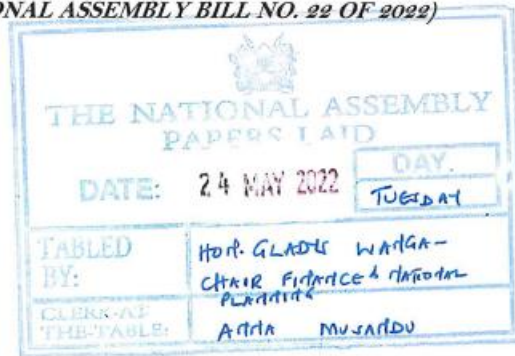 ONAL ASSEMBLY BILL NO. 22 OF 2022)
THE NATIONAL ASSEMBLY
PAPERS LAID
DATE: 24 MAY 2022
DAY.
TUESDAY
TABLED BY: HON. GLADYS WANGA-
CHAIR FINANCE & NATIONAL
PLANNING
CLERK-AT
THE-TABLE: ANNA MUSANDU